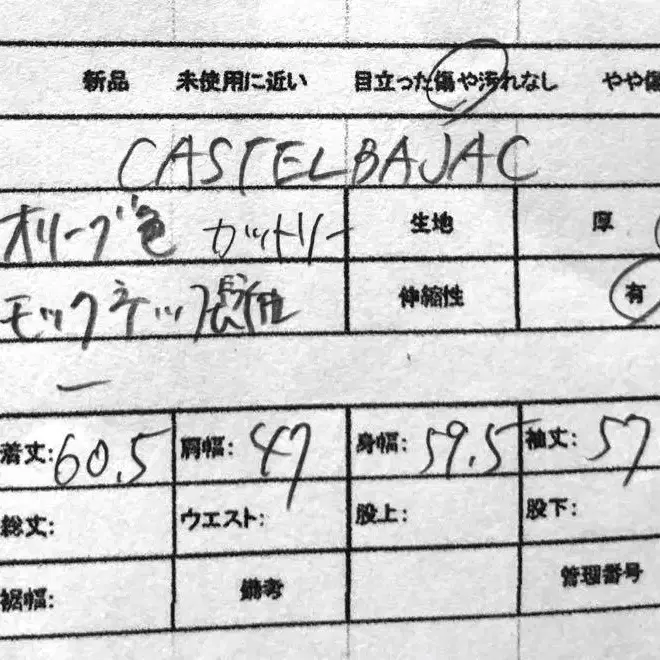 新品 未使用に近い 目立った傷や汚れなし やや傷
CASTELBAJAC
オリーブ色 カットソー 生地 厚
モックネック長袖 伸縮性 有
着丈:60.5 肩幅:47 身幅:59.5 袖丈:57
総丈: ウエスト: 股上: 股下:
裾幅: 備考 管理番号